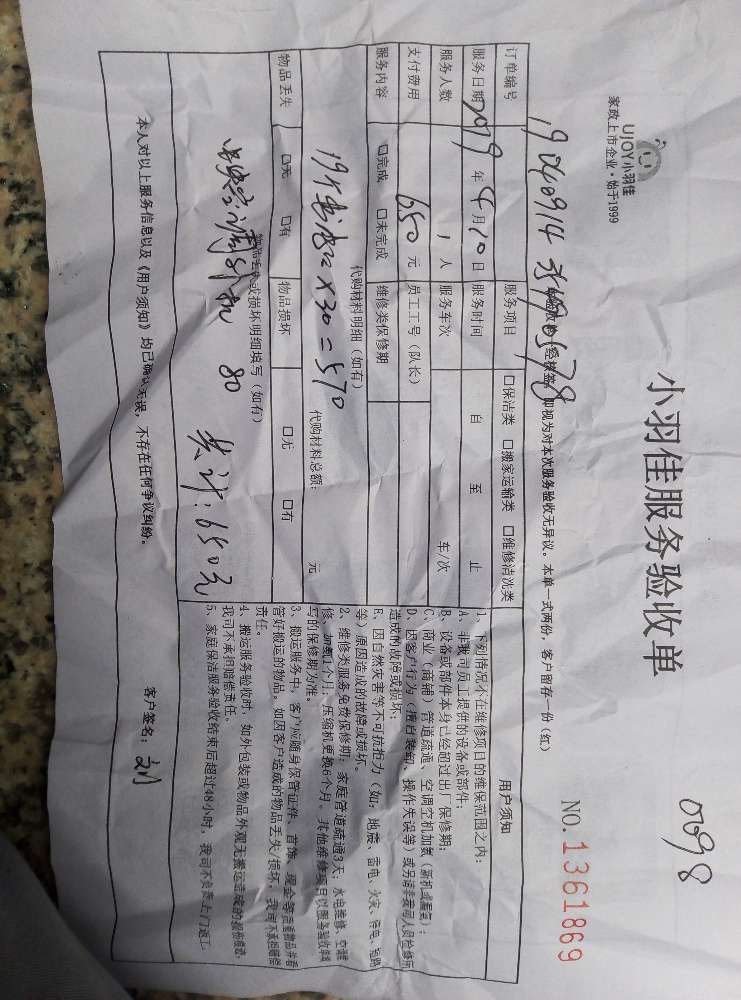 0698
UJOY小羽佳
家政上市企业·始于1999
小羽佳服务验收单
NO.1361869
即视为对本次服务验收无异议。本单一式两份，客户留存一份（红）
订单编号 19040914
服务项目 □保洁类 □搬家运输类 □维修清洗类
服务日期 2019年4月10日 服务时间 自 至 止
服务人数 1人 服务车次 车/次
支付费用 650元 员工工号（队长）
服务内容 □完成 □未完成 维修类保修期
代购材料明细（如有）
×30=570
代购材料总额： 元
物品丢失 □无 □有 物品损坏 □无 □有
物品丢失或损坏明细填写（如有）
80
共计：650元
用户须知
1、下列情况不在维修项目的维保范围之内：
A、非我司员工提供的设备或部件；
B、设备或部件本身已经超过出厂保修期；
C、商业（商铺）管道疏通、空调空机加氟（新机或漏氟）；
D、因客户行为（擅自装卸、操作失误等）或另请非我司人员检修所
造成的故障或损坏；
E、因自然灾害等不可抗拒力（如：地震、雷电、火灾、停电、短路
等）原因造成的故障或损坏。
2、维修类服务免费保修期：家庭管道疏通3天；水电维修、空调维
修、加氟1个月，压缩机更换6个月。其他维修项目以服务验收单填
写的保修期为准。
3、搬运服务中，客户应随身保管证件、首饰、现金等贵重物品并看
管好搬运的物品。如因客户造成的物品丢失/损坏，我司不承担赔偿
责任。
4、搬运服务验收时，如外包装或物品外观无搬运造成的损伤痕迹，
我司不承担赔偿责任。
5、家庭保洁服务验收结束后超过48小时，我司不负责上门返工。
本人对以上服务信息以及《用户须知》均已确认无误，不存在任何争议纠纷。 客户签名：